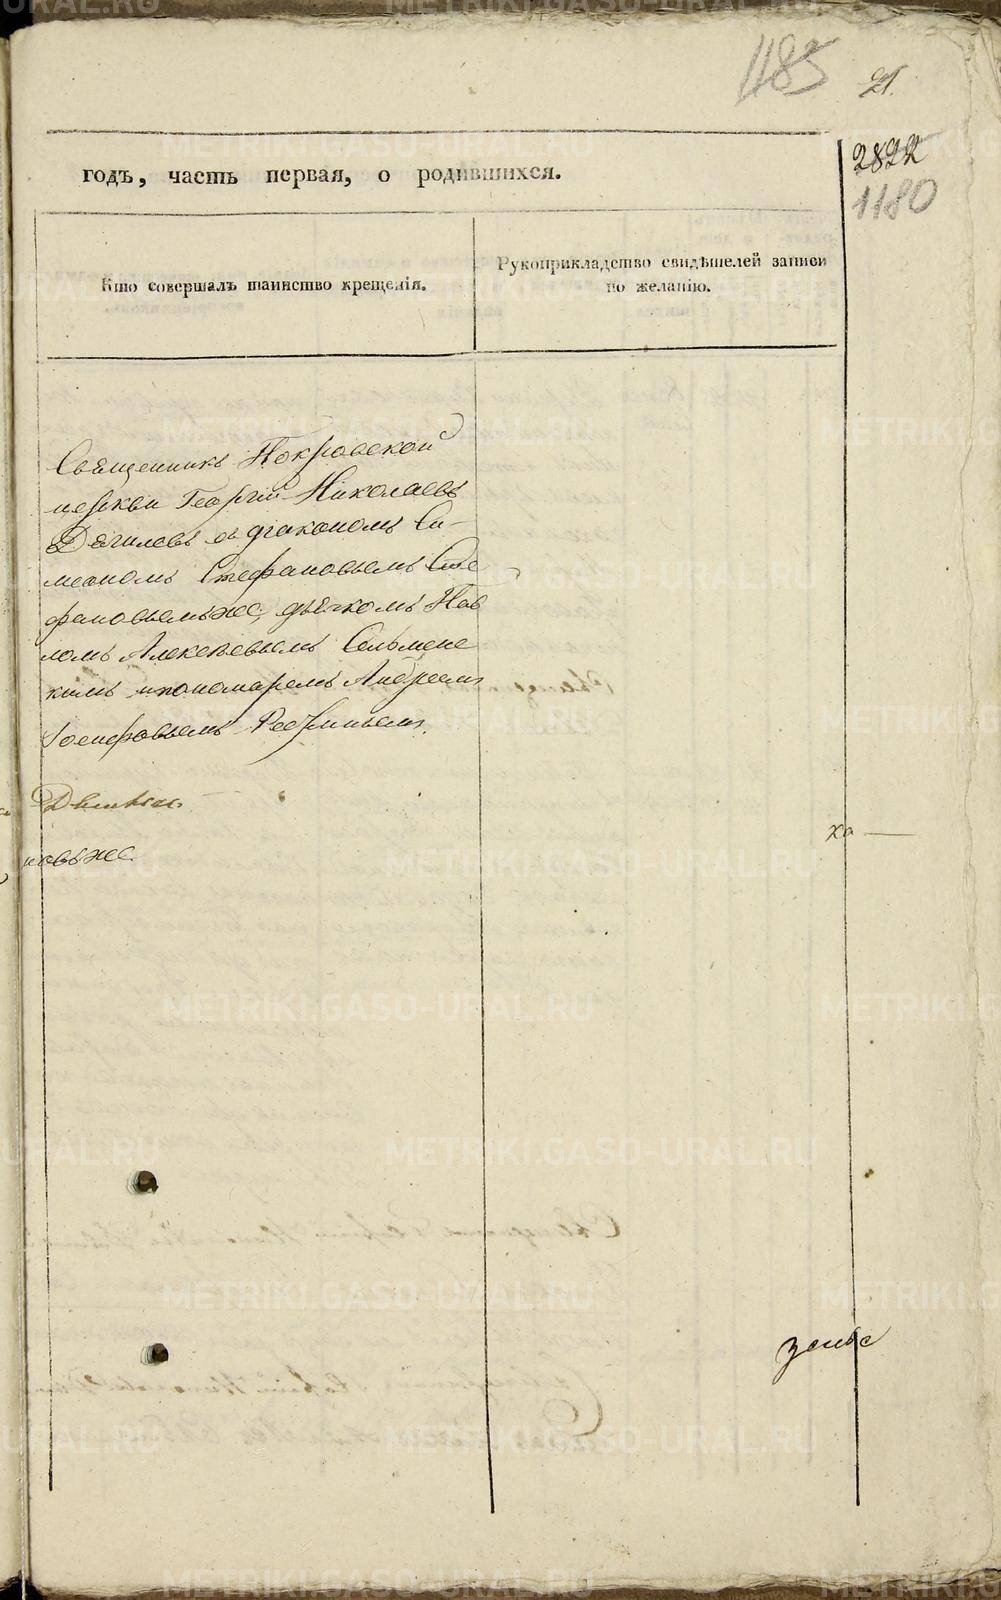 1185
21.
2822
1180
годъ, часть первая, о родившихся.
Кто совершалъ таинство крещенія.
Рукоприкладство свидѣтелей записи
по желанію.
Священникъ Покровской
церкви Георгій Николаевъ
Дягилевъ съ діакономъ Си-
меономъ Стефановымъ Сте
фановымъ же, дьячкомъ Пав
ломъ Алексѣевымъ Сельмен
кимъ и пономаремъ Андреемъ
Іосифовымъ
новъ же.
ха
METRIKI.GASO-URAL.RU